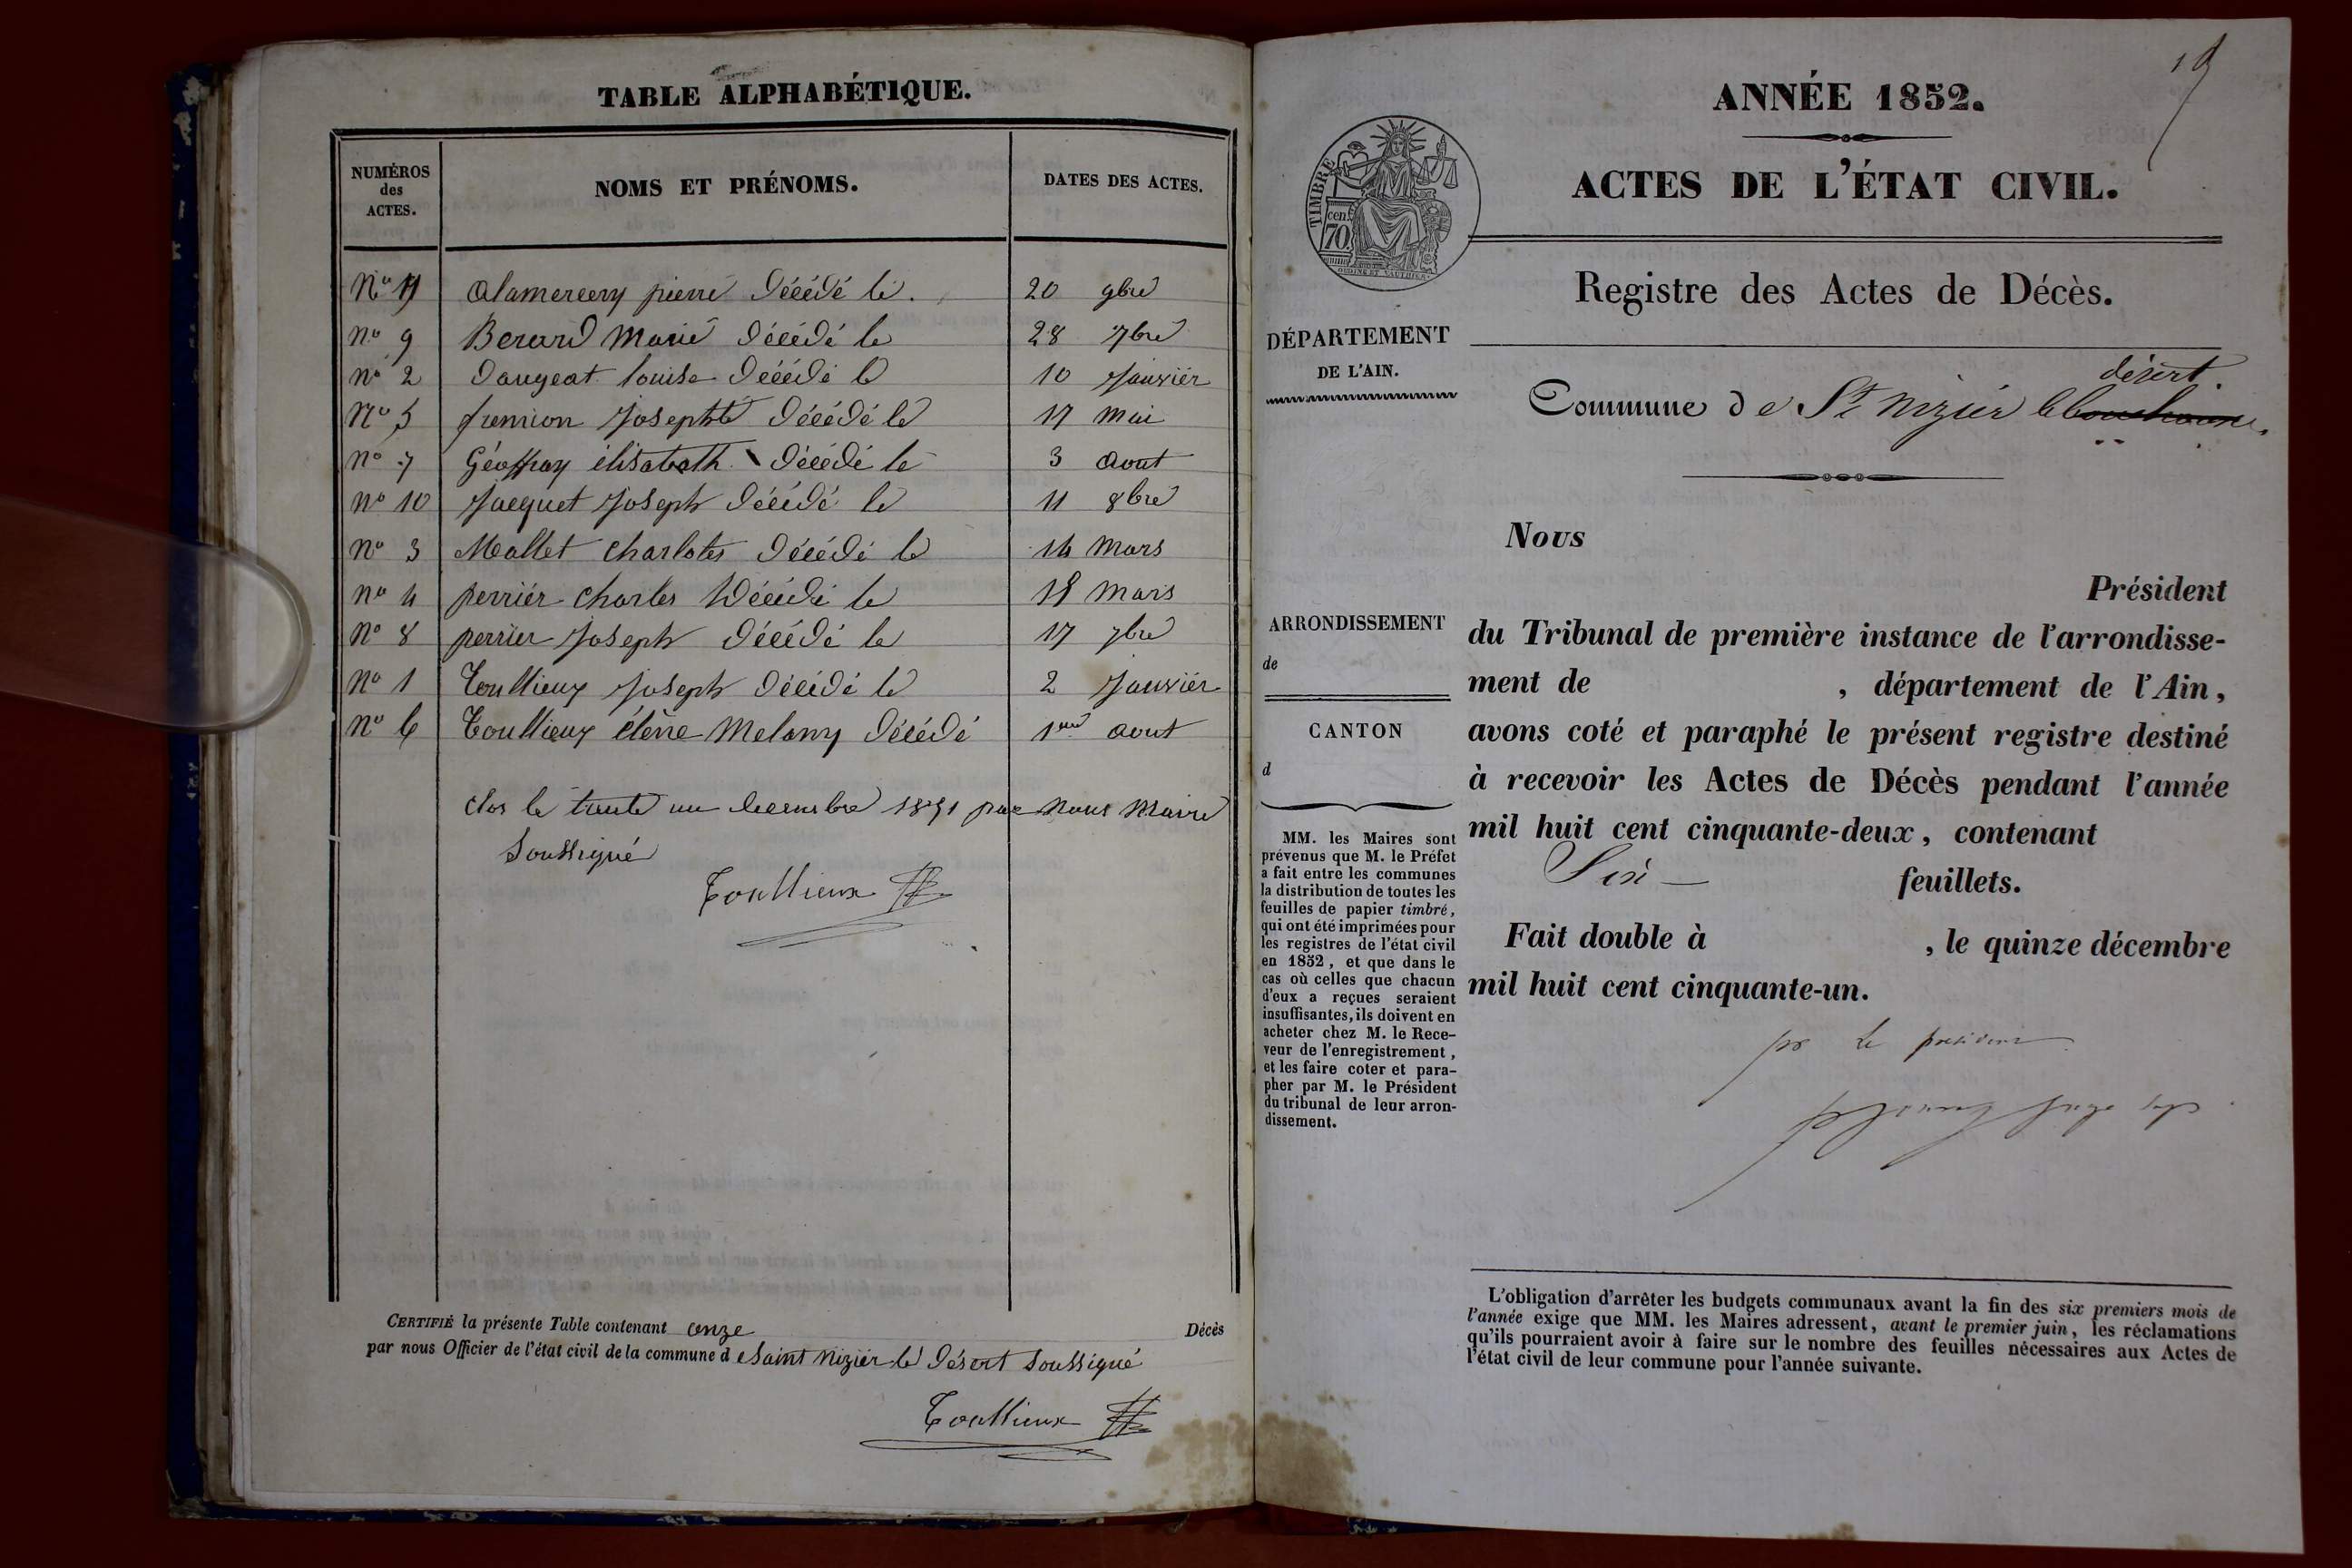 TABLE ALPHABÉTIQUE.
NUMÉROS
des
ACTES.
NOMS ET PRÉNOMS.
DATES DES ACTES.
No 11 alamercery pierre décédé le. 20 9bre
no 9 Berard Marie décédé le 28 7bre
no 2 daugeat louise décédé le 10 Janvier
No 5 fremion Josephte décédé le 17 mai
no 7 Géoffray élisabeth décédé le 3 aout
no 10 Jacquet Joseph décédé le 11 8bre
no 3 Mallet charlotes décédé le 14 Mars
no 4 perriér charles décédé le 18 Mars
No 8 perrier Joseph décédé le 17 7bre
No 1 Toullieux Joseph décédé le 2 Janviér
no 6 Toullieux élène Melany décédé 1er aout
clos le trente un decembre 1851 par nous Maire
Soussigné
Toullieux
CERTIFIÉ la présente Table contenant onze Décès
par nous Officier de l'état civil de la commune de Saint Niziér le désert soussigné
Toullieux
19
ANNÉE 1852.
ACTES DE L'ÉTAT CIVIL.
TIMBRE
70 cen.
Registre des Actes de Décès.
DÉPARTEMENT
DE L'AIN.
désert.
Commune de St Niziér le bouchoux.
Nous
Président
ARRONDISSEMENT
de
CANTON
d
du Tribunal de première instance de l'arrondisse-
ment de , département de l'Ain,
avons coté et paraphé le présent registre destiné
à recevoir les Actes de Décès pendant l'année
mil huit cent cinquante-deux, contenant
Six feuillets.
Fait double à , le quinze décembre
mil huit cent cinquante-un.
MM. les Maires sont
prévenus que M. le Préfet
a fait entre les communes
la distribution de toutes les
feuilles de papier timbré,
qui ont été imprimées pour
les registres de l'état civil
en 1852, et que dans le
cas où celles que chacun
d'eux a reçues seraient
insuffisantes, ils doivent en
acheter chez M. le Rece-
veur de l'enregistrement,
et les faire coter et para-
pher par M. le Président
du tribunal de leur arron-
dissement.
pr le président
L'obligation d'arrêter les budgets communaux avant la fin des six premiers mois de
l'année exige que MM. les Maires adressent, avant le premier juin, les réclamations
qu'ils pourraient avoir à faire sur le nombre des feuilles nécessaires aux Actes de
l'état civil de leur commune pour l'année suivante.